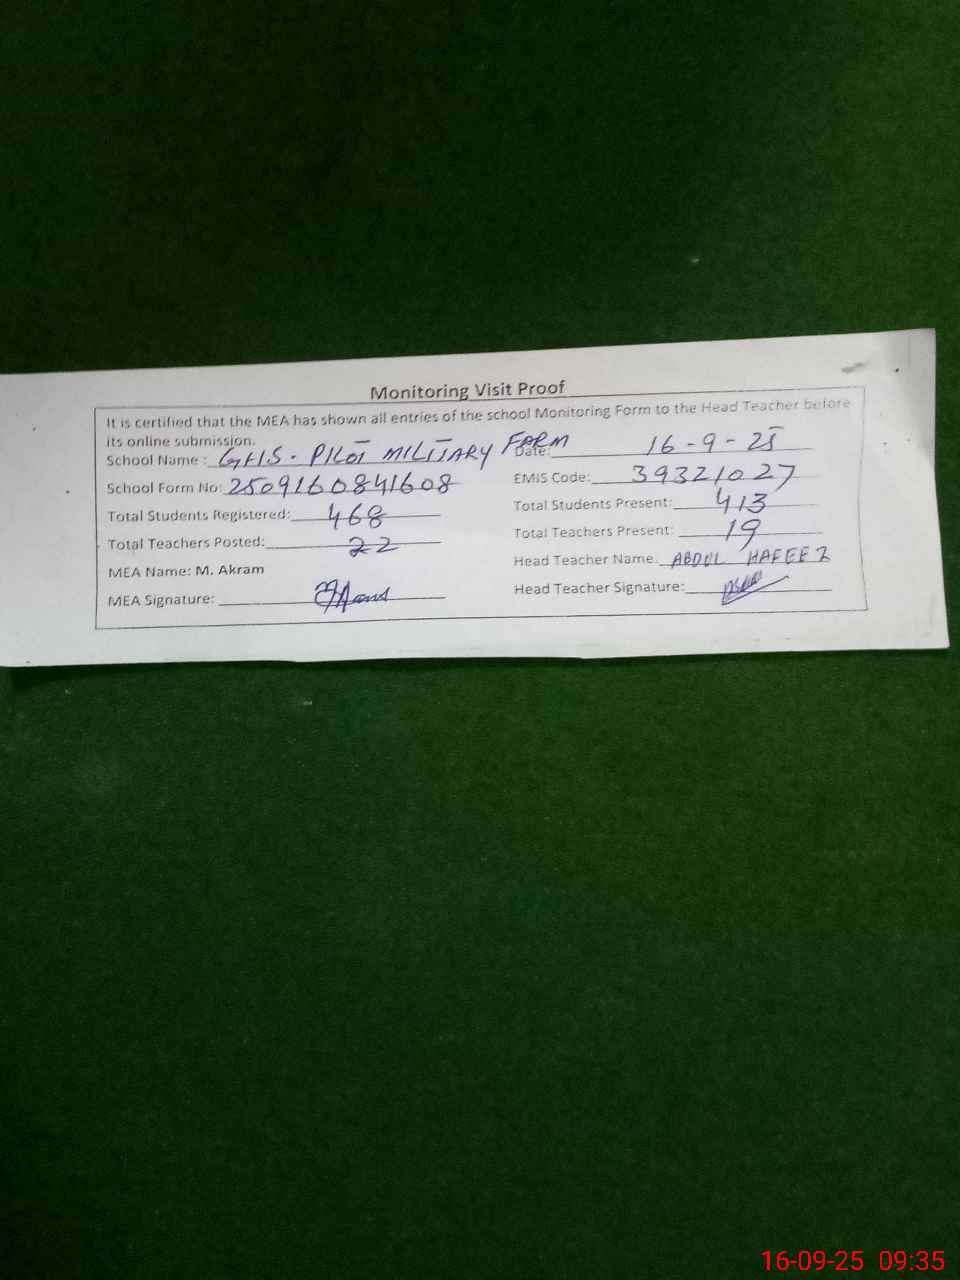 Monitoring Visit Proof
It is certified that the MEA has shown all entries of the school Monitoring Form to the Head Teacher before
its online submission.
School Name : GHS. PILOT MILITARY FARM Date: 16-9-25
School Form No: 2509160841608 EMIS Code: 39321027
Total Students Registered: 468 Total Students Present: 413
Total Teachers Posted: 22 Total Teachers Present: 19
MEA Name: M. Akram Head Teacher Name. ABDUL HAFEEZ
MEA Signature: Head Teacher Signature:
16-09-25 09:35